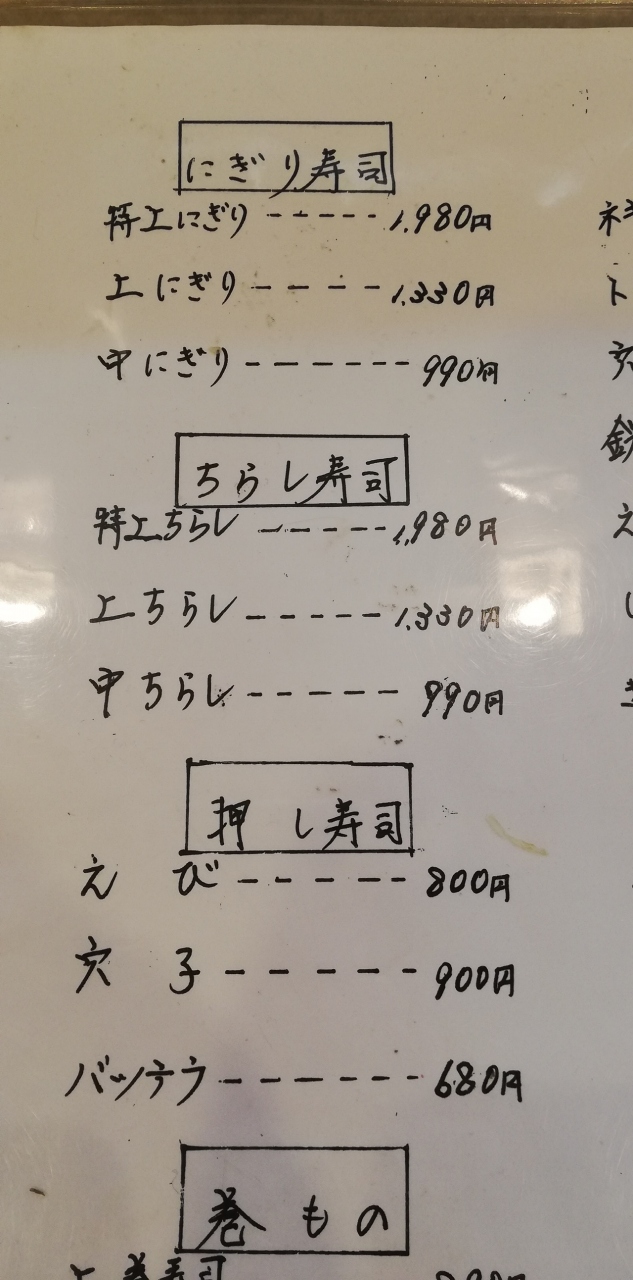 にぎり寿司
特上にぎり ----- 1,980円
上にぎり ---- 1,330円
中にぎり ------- 990円
ちらし寿司
特上ちらし ----- 1,980円
上ちらし ----- 1,330円
中ちらし ----- 990円
押し寿司
えび ----- 800円
穴子 ----- 900円
バッテラ ------ 680円
巻もの